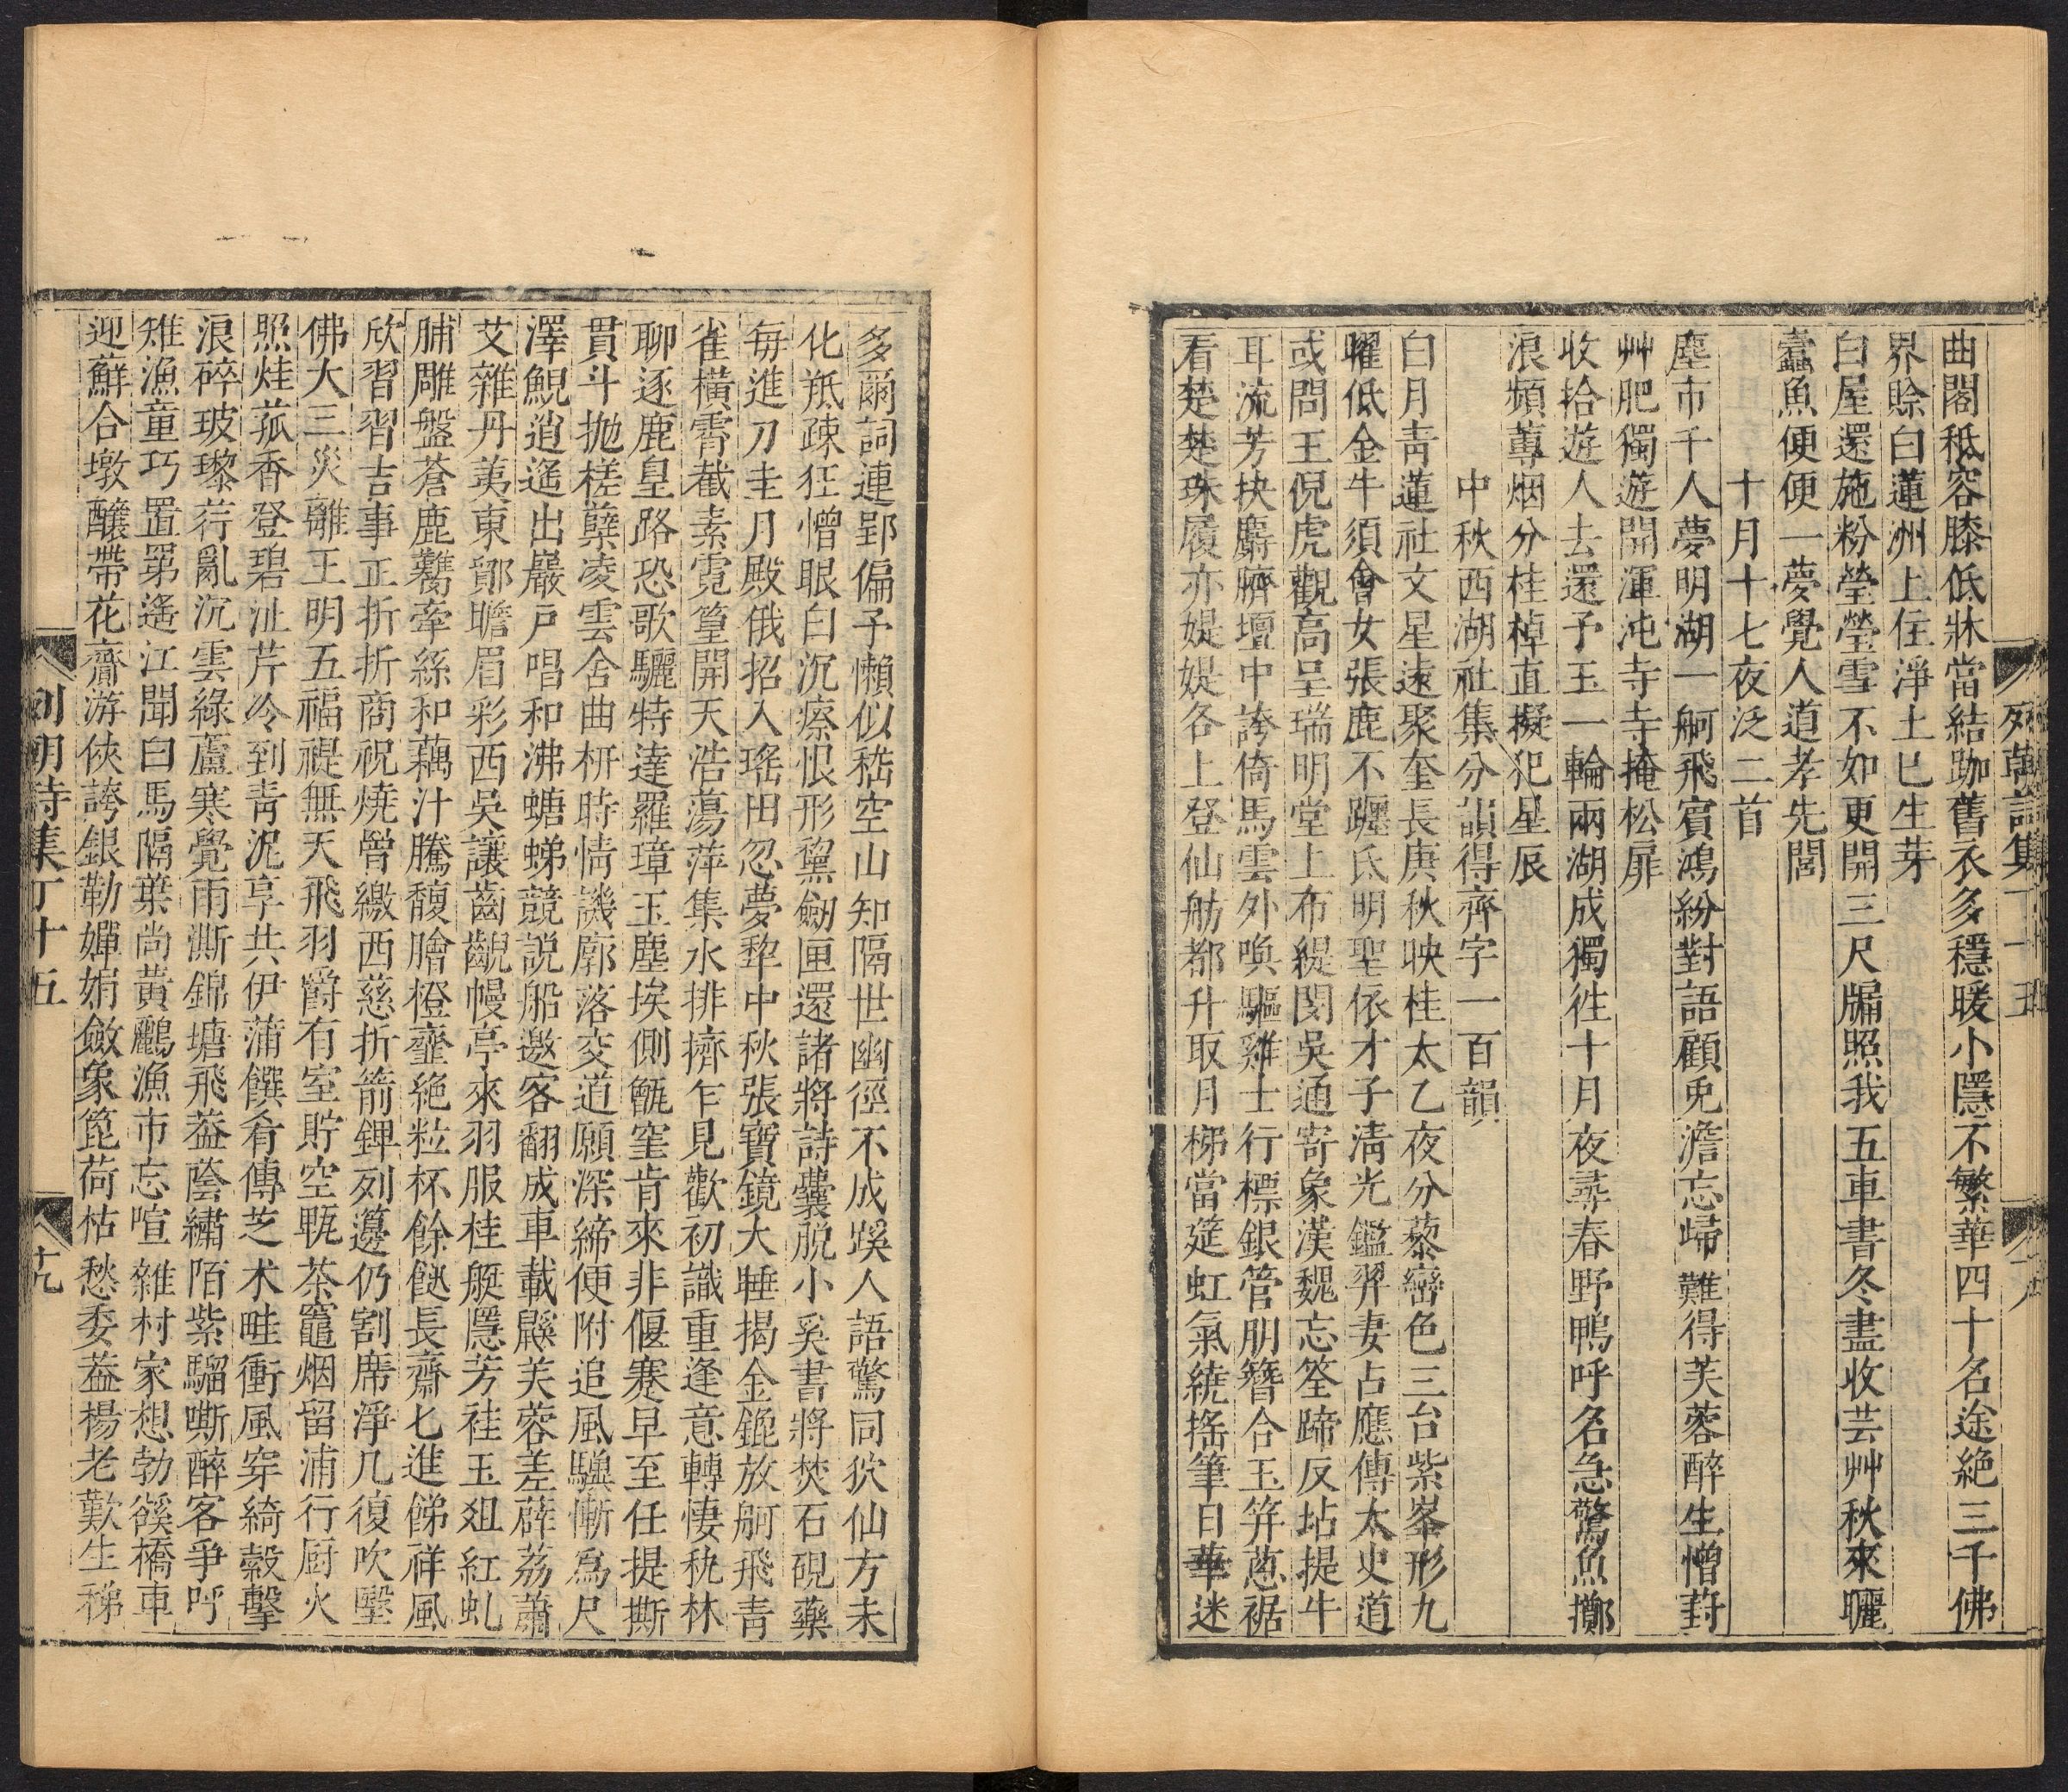 曲閣秪容膝低牀當結跏舊衣多穩暖小隱不繁華四十名途絶三千佛
界賒白蓮洲上住淨土已生芽
白屋還施粉瑩瑩雪不如更開三尺牖照我五車書冬盡收芸艸秋來曬
蠹魚便便一夢覺人道孝先閭
十月十七夜泛二首
塵市千人夢明湖一舸飛賓鴻紛對語顧兎澹忘歸難得芙蓉醉生憎葑
艸肥獨遊開渾沌寺寺掩松扉
收拾遊人去還予玉一輪兩湖成獨徃十月夜尋春野鴨呼名急驚魚擲
浪頻蓴烟分桂棹直擬犯星辰
中秋西湖社集分韻得齊字一百韻
白月青蓮社文星遠聚奎長庚秋映桂太乙夜分藜巒色三台紫峯形九
曜低金牛須會女張鹿不躔氐明聖依才子淸光鑑羿妻占應傳太史道
或問王倪虎觀高呈瑞明堂上布緹閔吳通寄象漢魏忘筌蹄反坫提牛
耳流芳抉麝臍壇中誇倚馬雲外喚驅雞士行標銀管朋簪合玉笄蒽裾
看楚楚珠履亦媞媞各上登仙舫都升取月梯當筵虹氣繞搖筆日華迷
多爾詞連郢偏予懶似嵇空山知隔世幽徑不成蹊人語驚同狖仙方未
化羝疎狂憎眼白沉瘵恨形黧劒匣還諸將詩囊脱小奚書將焚石硯藥
每進刀圭月殿俄招入瑤田忽夢犂中秋張寶鏡大睡揭金鎞放舸飛青
雀橫霄截素霓篁開天浩蕩萍集水排擠乍見歡初識重逢意轉悽秇林
聊逐鹿皇路恐歌驪特達羅璋玉塵埃側甑窐肯來非偃蹇早至任提撕
貫斗抛槎蘖凌雲舍曲枅時情譏廓落交道願深締便附追風驥慚爲尺
澤鯢逍遙出巖戸唱和沸螗蜩競説船邀客翻成車載鼷芙蓉差薜荔蕭
艾雜丹荑東鄰瞻眉彩西吳讓齒齯幔亭來羽服桂艇隱芳袿玉俎紅虬
脯雕盤蒼鹿鸃牽絲和藕汁騰馥膾橙虀絶粒杯餘飿長齋七進餙祥風
欣習習吉事正折折商祝焼曾繳西慈折箭錍列籩仍割席淨几復吹壂
佛大三災離王明五福禔無天飛羽爵有室貯空甀茶竈烟留浦行厨火
照烓菰香登碧沚芹冷到靑泥享共伊蒲饌肴傳芝术畦衝風穿綺縠擊
浪碎玻瓈荇亂沉雲綠蘆寒覺雨澌錦塘飛葢蔭繡陌紫騮嘶醉客爭呼
雉漁童巧置罤遙江聞白馬隔葉尚黃鸝漁市忘喧雜村家想勃豀橋車
迎蘚合墩釀帶花齎游俠誇銀勒嬋娟斂象篦荷枯愁委葢楊老歎生稊
列朝詩集丁十五
十九